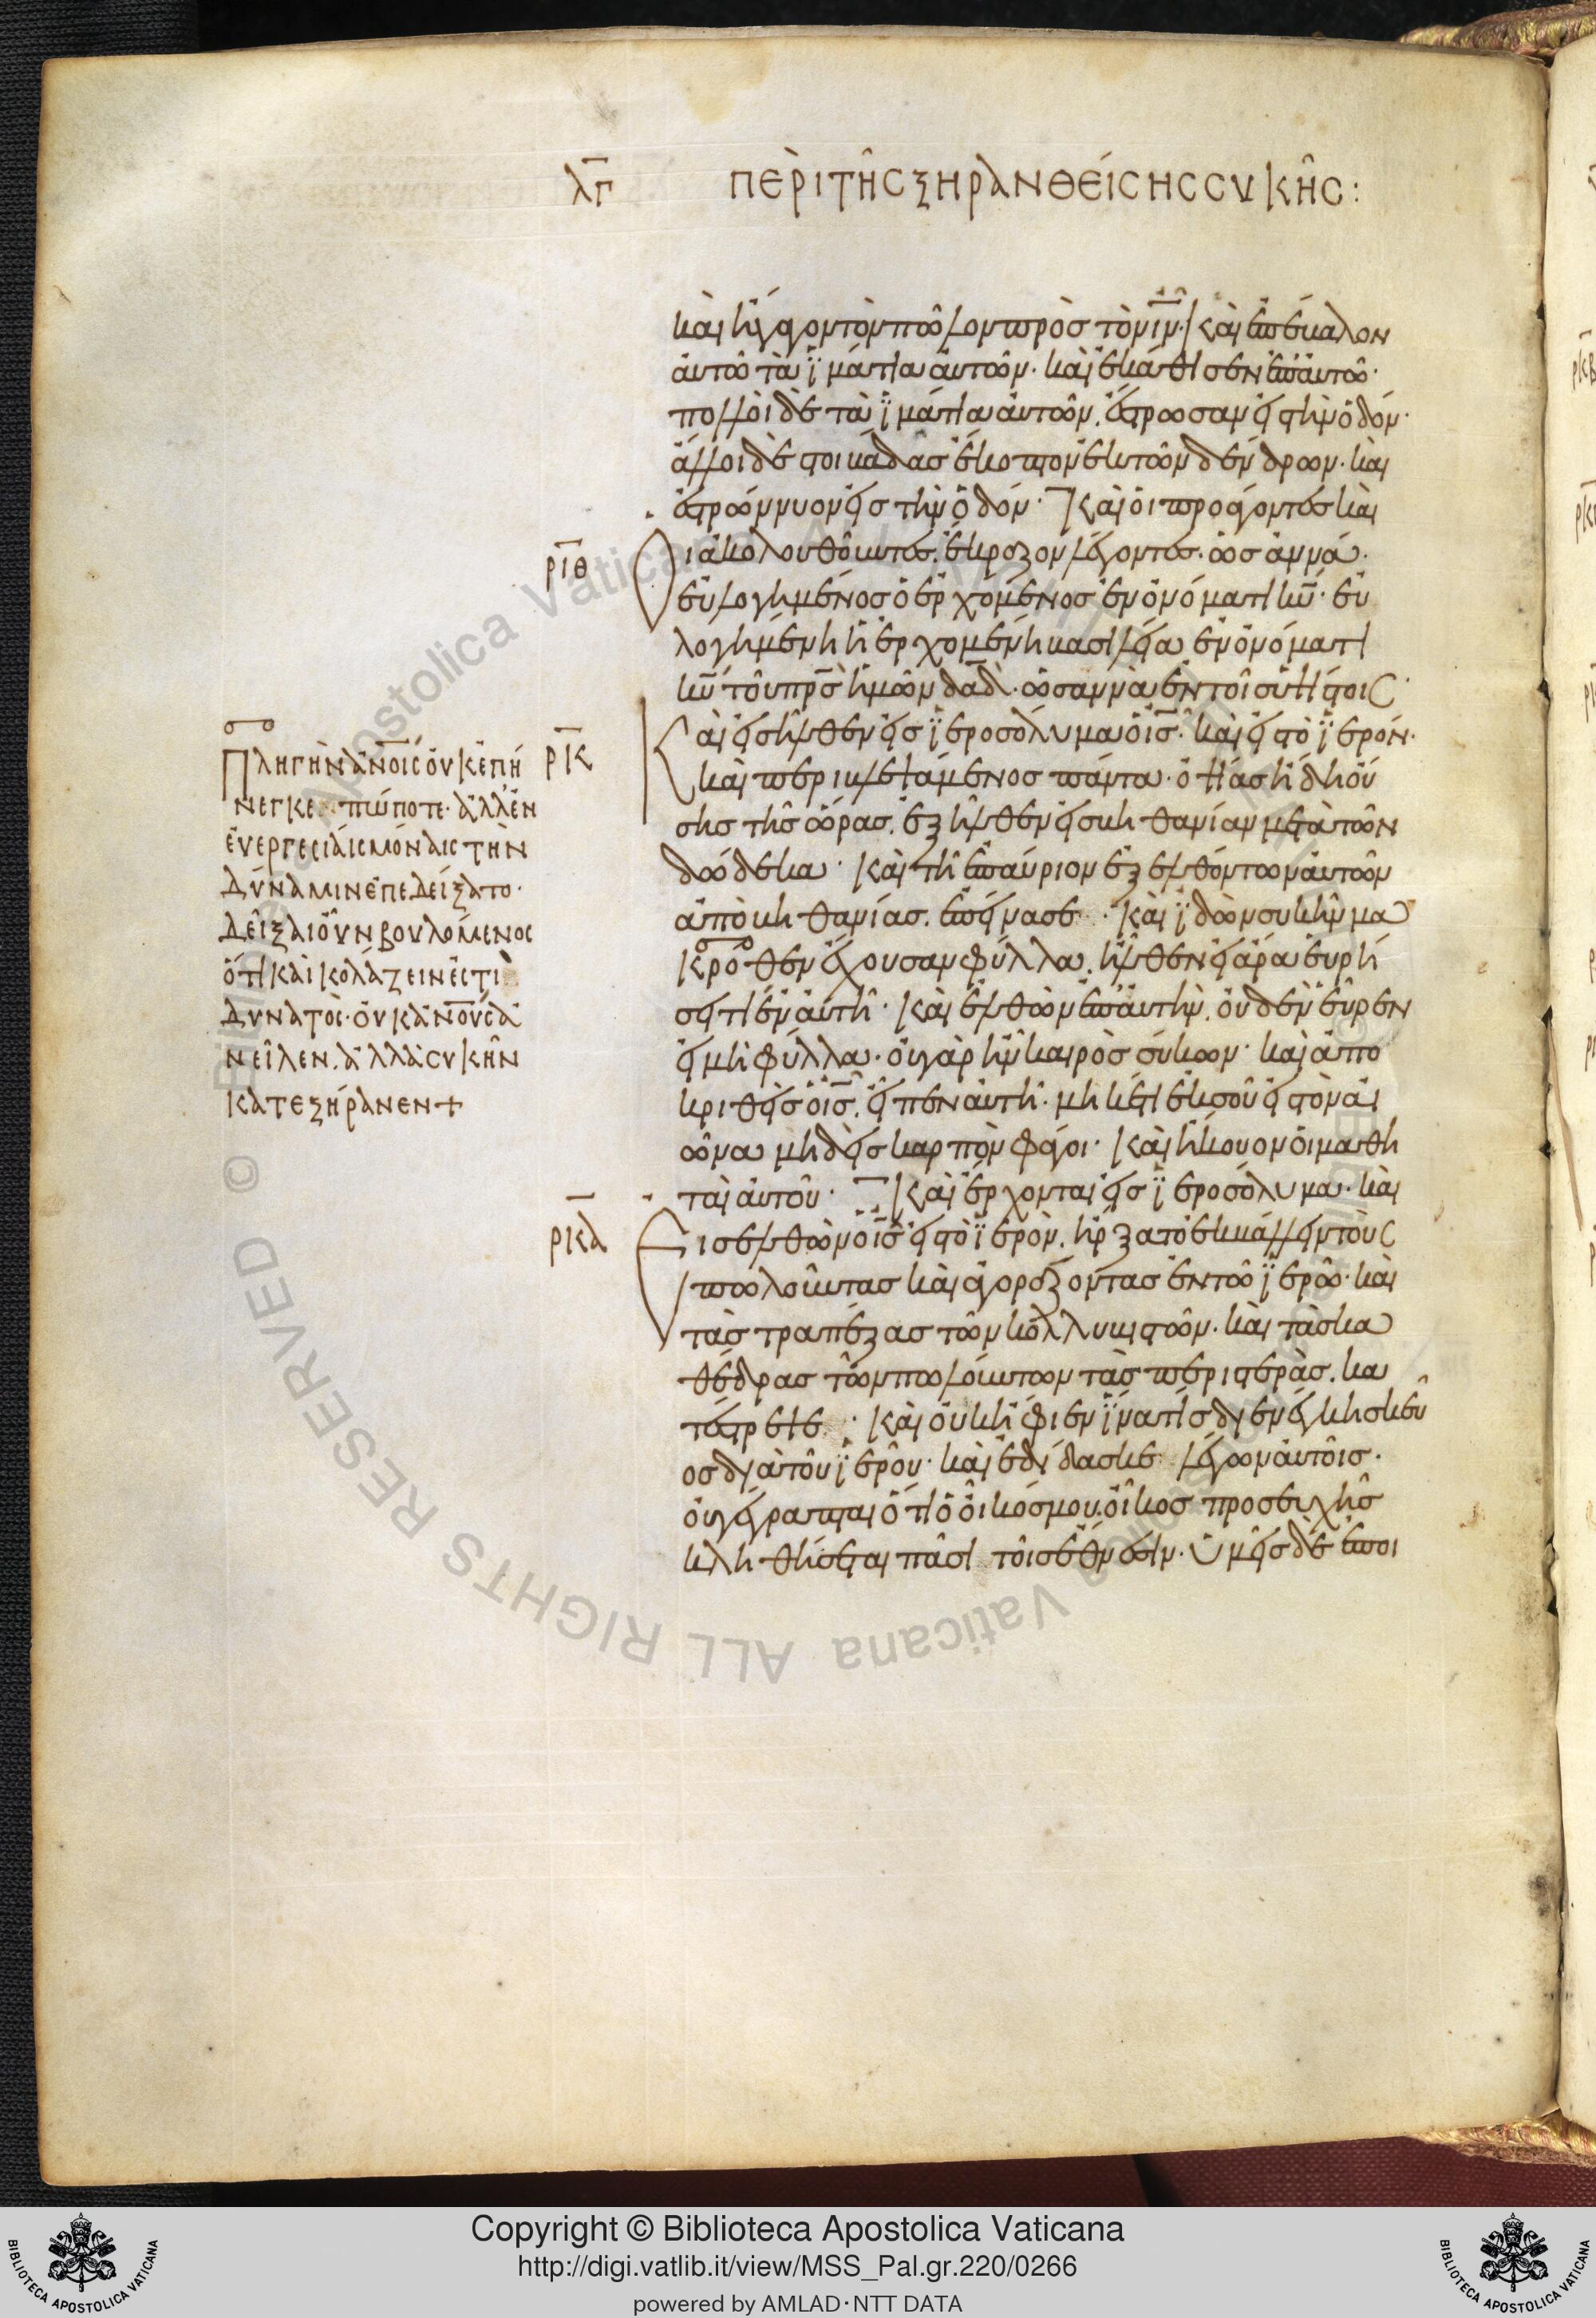 λγ ΠΕΡῚ ΤΗ͂Σ ΞΗΡΑΝΘΕΊΣΗΣ ΣΥΚΗ͂Σ:
καὶ ἤγαγον τὸν πῶλον πρὸς τὸν ιν. Καὶ ἐπέβαλον
αὐτῶ τὰ ϊμάτια αὐτῶν. καὶ ἐκάθισεν ἐπ' αὐτῶ.
πολλοὶ δὲ τὰ ϊμάτια αὐτῶν. ἔστρωσαν εἰς τὴν ὁδόν.
ἄλλοι δὲ στοιβάδας ἔκοπτον ἐκ τῶν δένδρων. καὶ
ἐστρώννυον εἰς τὴν ὁδόν. Καὶ οἱ προάγοντες καὶ
ριθ οἱ ἀκολουθοῦντες. ἔκραζον λέγοντες. ὡσαννά.
εὐλογημένος ὁ ἐρχόμενος ἐν ὀνόματι κυ. εὐ
λογημένη ἡ ἐρχομένη βασιλεία ἐν ὀνόματι
κυ τοῦ πρς ἡμῶν δαδ. ὡσαννὰ ἐν τοῖς ὑψίστοις.
ρκ Καὶ εἰσῆλθεν εἰς ϊεροσόλυμα ὁ ις. καὶ εἰς τὸ ϊερόν.
καὶ περιβλεψάμενος πάντα. ὀψίας ἤδη οὔ
σης τῆς ὥρας. ἐξῆλθεν εἰς βηθανίαν μετὰ τῶν
δώδεκα. Καὶ τῆ ἐπαύριον ἐξελθόντων αὐτῶν
ἀπὸ βηθανίας. ἐπείνασε. Καὶ ϊδὼν συκῆν μα
κρόθεν ἔχουσαν φύλλα. ἦλθεν εἰ ἄρα εὑρή
σει τι ἐν αὐτῆ. Καὶ ἐλθὼν ἐπ' αὐτὴν. οὐδὲν εὗρεν
εἰ μὴ φύλλα. οὐ γὰρ ἦν καιρὸς σύκων. καὶ ἀπο
κριθεὶς ὁ ις. εἶπεν αὐτῆ. μηκέτι ἐκ σοῦ εἰς τὸν αἰ
ῶνα μηδεὶς καρπὸν φάγοι. Καὶ ἤκουον οἱ μαθη
ταὶ αὐτοῦ. Καὶ ἔρχονται εἰς ϊεροσόλυμα. καὶ
ρκα Εἰσελθὼν ὁ ις εἰς τὸ ϊερὸν. ἤρξατο ἐκβάλλειν τοὺς
πωλοῦντας καὶ ἀγοράζοντας ἐν τῶ ϊερῶ. καὶ
τὰς τραπέζας τῶν κολλυβιστῶν. καὶ τὰς κα
θέδρας τῶν πωλούντων τὰς περιστερὰς. κα
τέστρεψε. Καὶ οὐκ ἤφιεν ϊνά τις διενέγκη σκεῦ
ος διὰ τοῦ ϊεροῦ. καὶ ἐδίδασκε λέγων αὐτοῖς.
οὐ γέγραπται ὅτι ὁ οἶκός μου. οἶκος προσευχῆς
κληθήσεται πᾶσι τοῖς ἔθνεσιν. ὑμεῖς δὲ ἐποι
Πληγὴν ἀνοις οὐκ ἐπή
νεγκε πώποτε. ἀλλ' ἐν
εὐεργεσίαις μόναις τὴν
δύναμιν ἐπεδείξατο.
δεῖξαι οὖν βουλόμενος
ὅτι καὶ κολάζειν ἐστὶ
δυνατὸς. οὐκ ἀνους ἀ
νεῖλεν. ἀλλὰ συκῆν
κατεξήρανεν+
Copyright © Biblioteca Apostolica Vaticana
http://digi.vatlib.it/view/MSS_Pal.gr.220/0266
powered by AMLAD·NTT DATA
BIBLIOTECA APOSTOLICA VATICANA
BIBLIOTECA APOSTOLICA VATICANA
© Biblioteca Apostolica Vaticana ALL RIGHTS RESERVED